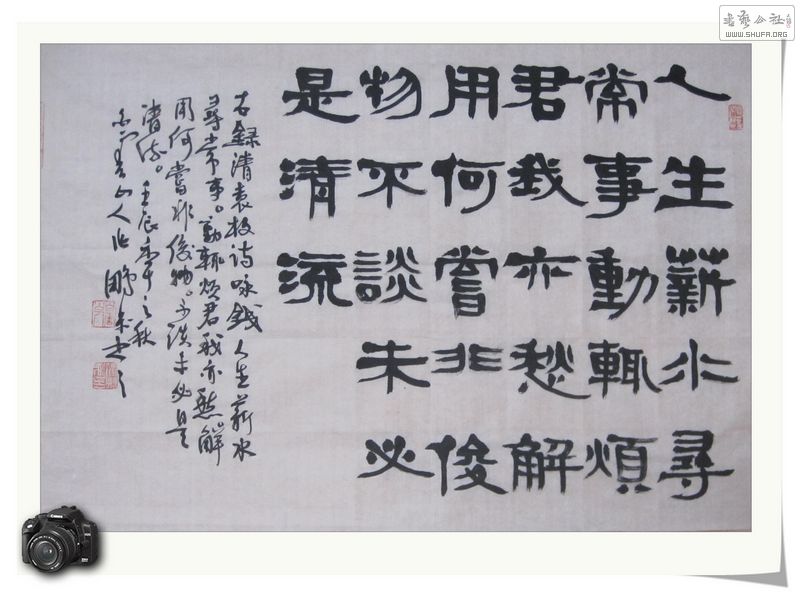 人生薪水尋
常事動輒煩
君我亦愁解
用何嘗非俊
物不談未必
是清流
右錄清袁枚詩咏錢人生薪水
尋常事。動輒煩君我亦愁解
用何嘗非俊物。不談未必是
清流。壬辰年之秋
山人
書藝公社
WWW.SHUFA.ORG
Canon